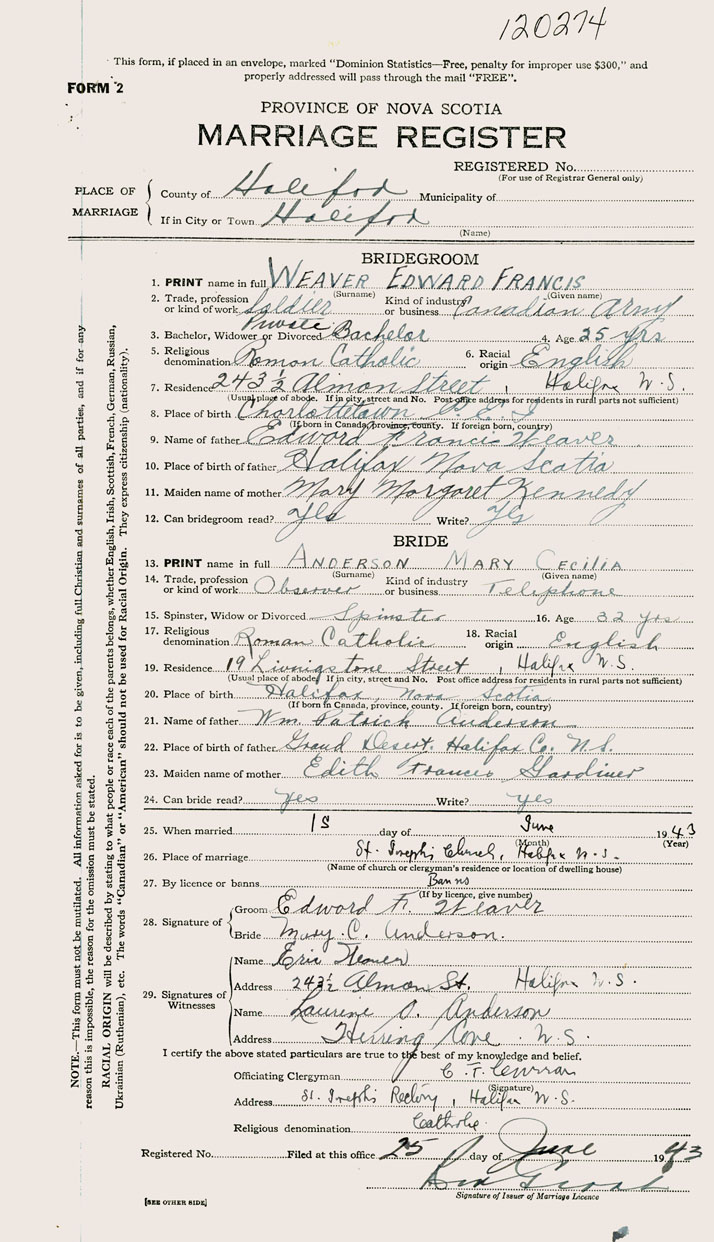 120274
This form, if placed in an envelope, marked "Dominion Statistics—Free, penalty for improper use $300," and
properly addressed will pass through the mail "FREE".
FORM 2
PROVINCE OF NOVA SCOTIA
MARRIAGE REGISTER
REGISTERED No.
(For use of Registrar General only)
PLACE OF MARRIAGE
County of Halifax Municipality of
If in City or Town Halifax
(Name)
BRIDEGROOM
1. PRINT name in full WEAVER EDWARD FRANCIS
(Surname) (Given name)
2. Trade, profession or kind of work Soldier Kind of industry or business Canadian Army
Private
3. Bachelor, Widower or Divorced Bachelor 4. Age 25 yrs
5. Religious denomination Roman Catholic 6. Racial origin English
7. Residence 243½ Almon Street, Halifax N.S.
(Usual place of abode. If in city, street and No. Post office address for residents in rural parts not sufficient)
8. Place of birth Charlottetown P.E.I
(If born in Canada, province, county. If foreign born, country)
9. Name of father Edward Francis Weaver
10. Place of birth of father Halifax Nova Scotia
11. Maiden name of mother Mary Margaret Kennedy
12. Can bridegroom read? Yes Write? Yes
BRIDE
13. PRINT name in full ANDERSON MARY CECILIA
(Surname) (Given name)
14. Trade, profession or kind of work Observer Kind of industry or business Telephone
15. Spinster, Widow or Divorced Spinster 16. Age 32 yrs
17. Religious denomination Roman Catholic 18. Racial origin English
19. Residence 19 Livingstone Street, Halifax N.S.
(Usual place of abode. If in city, street and No. Post office address for residents in rural parts not sufficient)
20. Place of birth Halifax, Nova Scotia
(If born in Canada, province, county. If foreign born, country)
21. Name of father Wm. Patrick Anderson
22. Place of birth of father Grand Desert. Halifax Co. N.S.
23. Maiden name of mother Edith Frances Gardiner
24. Can bride read? yes Write? yes
25. When married 15 day of June 1943
(Month) (Year)
26. Place of marriage St. Joseph's Church, Halifax N.S.
(Name of church or clergyman's residence or location of dwelling house)
27. By licence or banns Banns
(If by licence, give number)
28. Signature of
Groom Edward F. Weaver
Bride Mary C. Anderson.
29. Signatures of Witnesses
Name Eric Weaver
Address 243½ Almon St. Halifax N.S.
Name Anderson
Address Herring Cove N.S.
I certify the above stated particulars are true to the best of my knowledge and belief.
Officiating Clergyman C. F. Curran
(Signature)
Address St. Joseph's Rectory, Halifax N.S.
Religious denomination Catholic
Registered No. Filed at this office 25 day of June 1943
Signature of Issuer of Marriage Licence
[SEE OTHER SIDE]
NOTE.—This form must not be mutilated. All information asked for is to be given, including full Christian and surnames of all parties, and if for any
reason this is impossible, the reason for the omission must be stated.
RACIAL ORIGIN will be described by stating to what people or race each of the parents belongs, whether English, Irish, Scottish, French, German, Russian,
Ukrainian (Ruthenian), etc. The words "Canadian" or "American" should not be used for Racial Origin. They express citizenship (nationality).